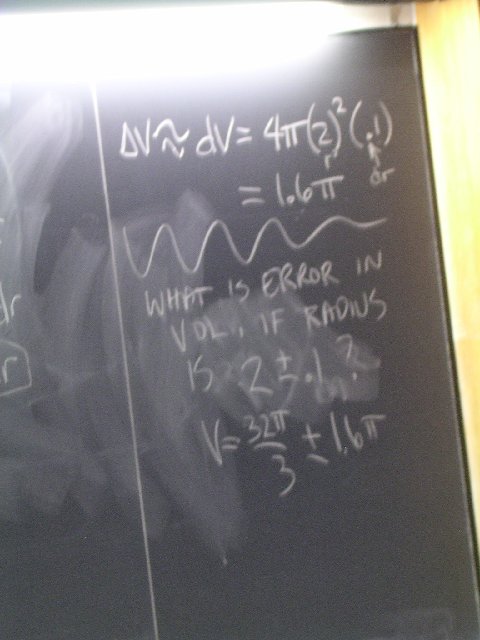 dr
r
ΔV ≈ dV = 4π(2)²(.1)
r dr
= 1.6π
WHAT IS ERROR IN
VOL, IF RADIUS
IS 2 ± .1 ?
V = 32π/3 ± 1.6π